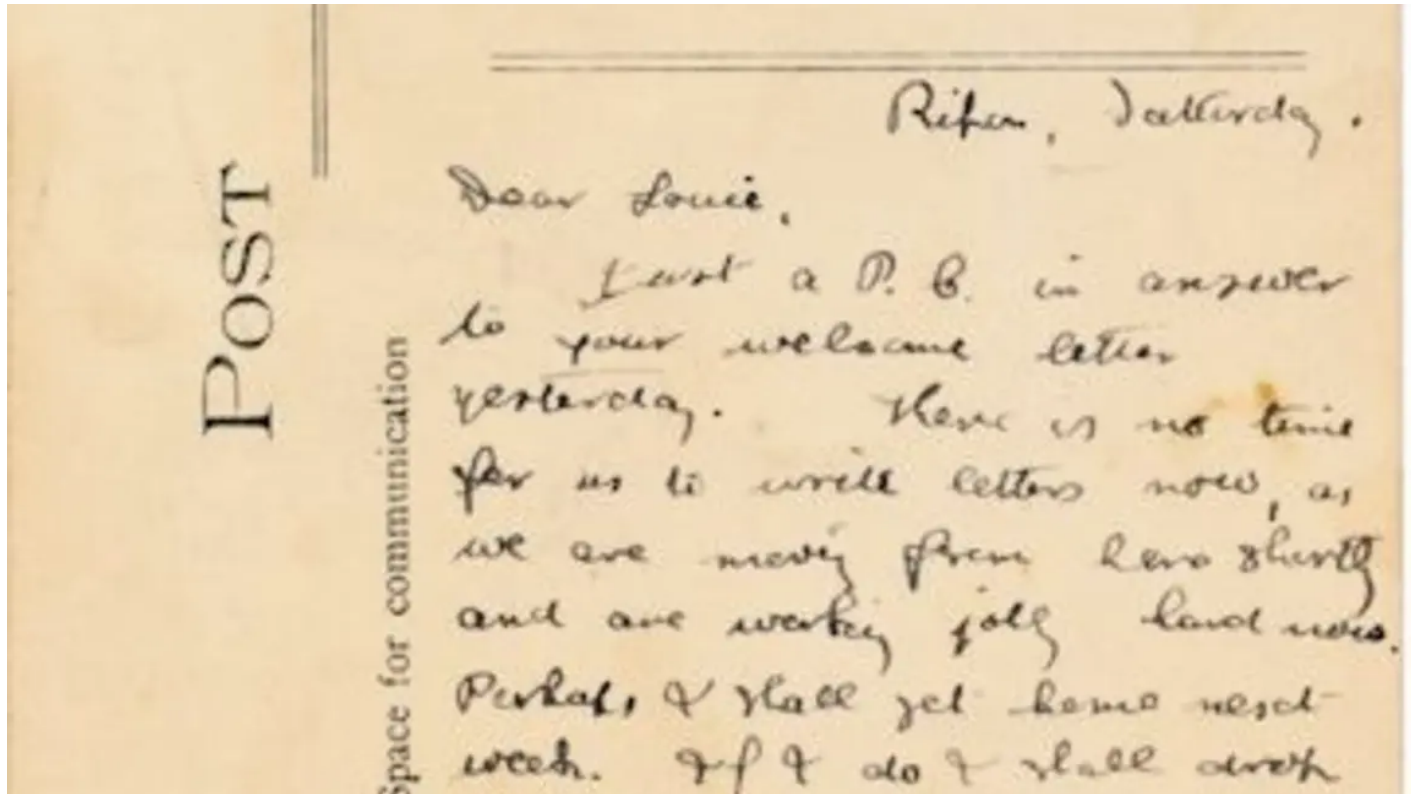 POST
Space for communication
Ripon, Saturday.
Dear Louie,
Just a P. C. in answer
to your welcome letter
yesterday. There is no time
for us to write letters now, as
we are moving from here shortly
and are working jolly hard now.
Perhaps I shall get home next
week. If I do I shall drop